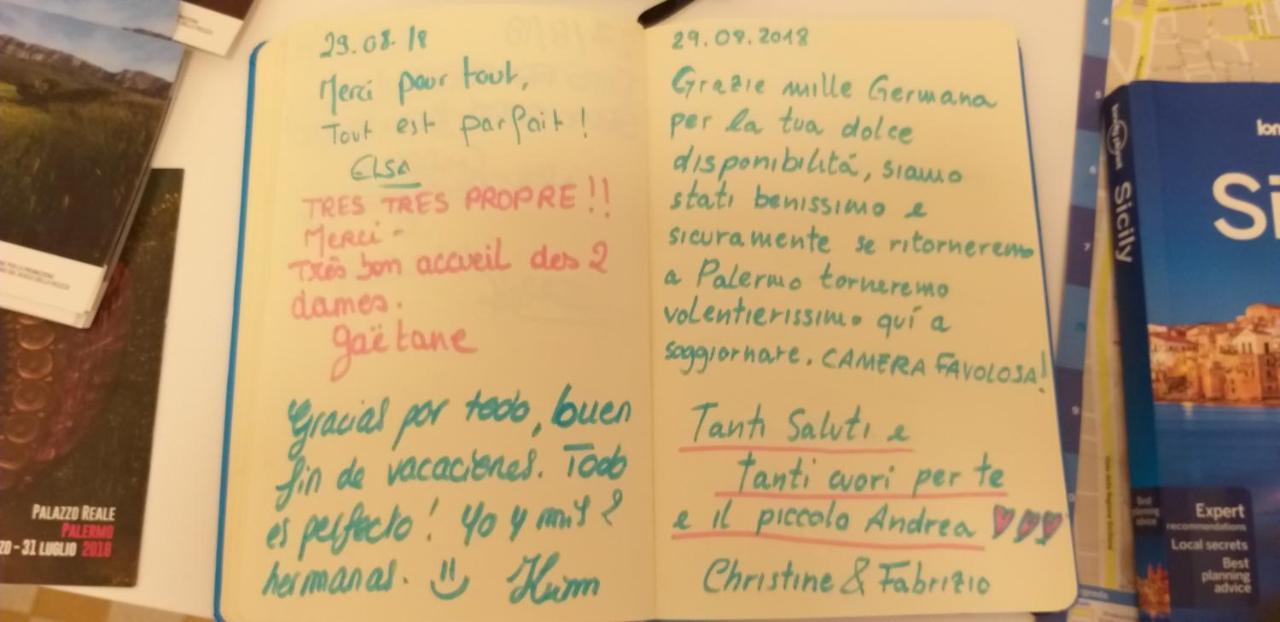 29.08.18
Merci pour tout,
Tout est parfait!
ELSA
TRES TRES PROPRE!!
Merci -
Très bon accueil des 2
dames.
Gaëtane
Gracias por todo, buen
fin de vacaciones. Todo
es perfecto! Yo y mis 2
hermanas.
29.08.2018
Grazie mille Germana
per la tua dolce
disponibilitá, siamo
stati benissimo e
sicuramente se ritorneremo
a Palermo torneremo
volentierissimo quí a
soggiornare. CAMERA FAVOLOSA!
Tanti Saluti e
tanti cuori per te
e il piccolo Andrea
Christine & Fabrizio
PALAZZO REALE
PALERMO
ZO - 31 LUGLIO 2018
lonely planet
Sicily
lon
Si
Expert
recommendations
Local secrets
Best
planning
advice